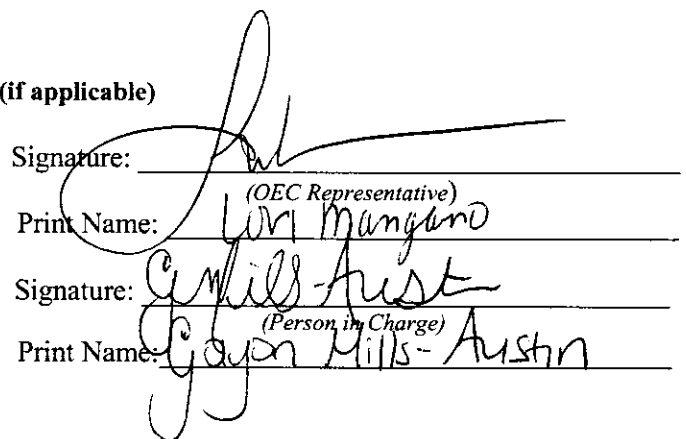 (if applicable)
Signature:
(OEC Representative)
Print Name: Lori Mangano
Signature: G Mills-Austin
(Person in Charge)
Print Name: Gayon Mills-Austin